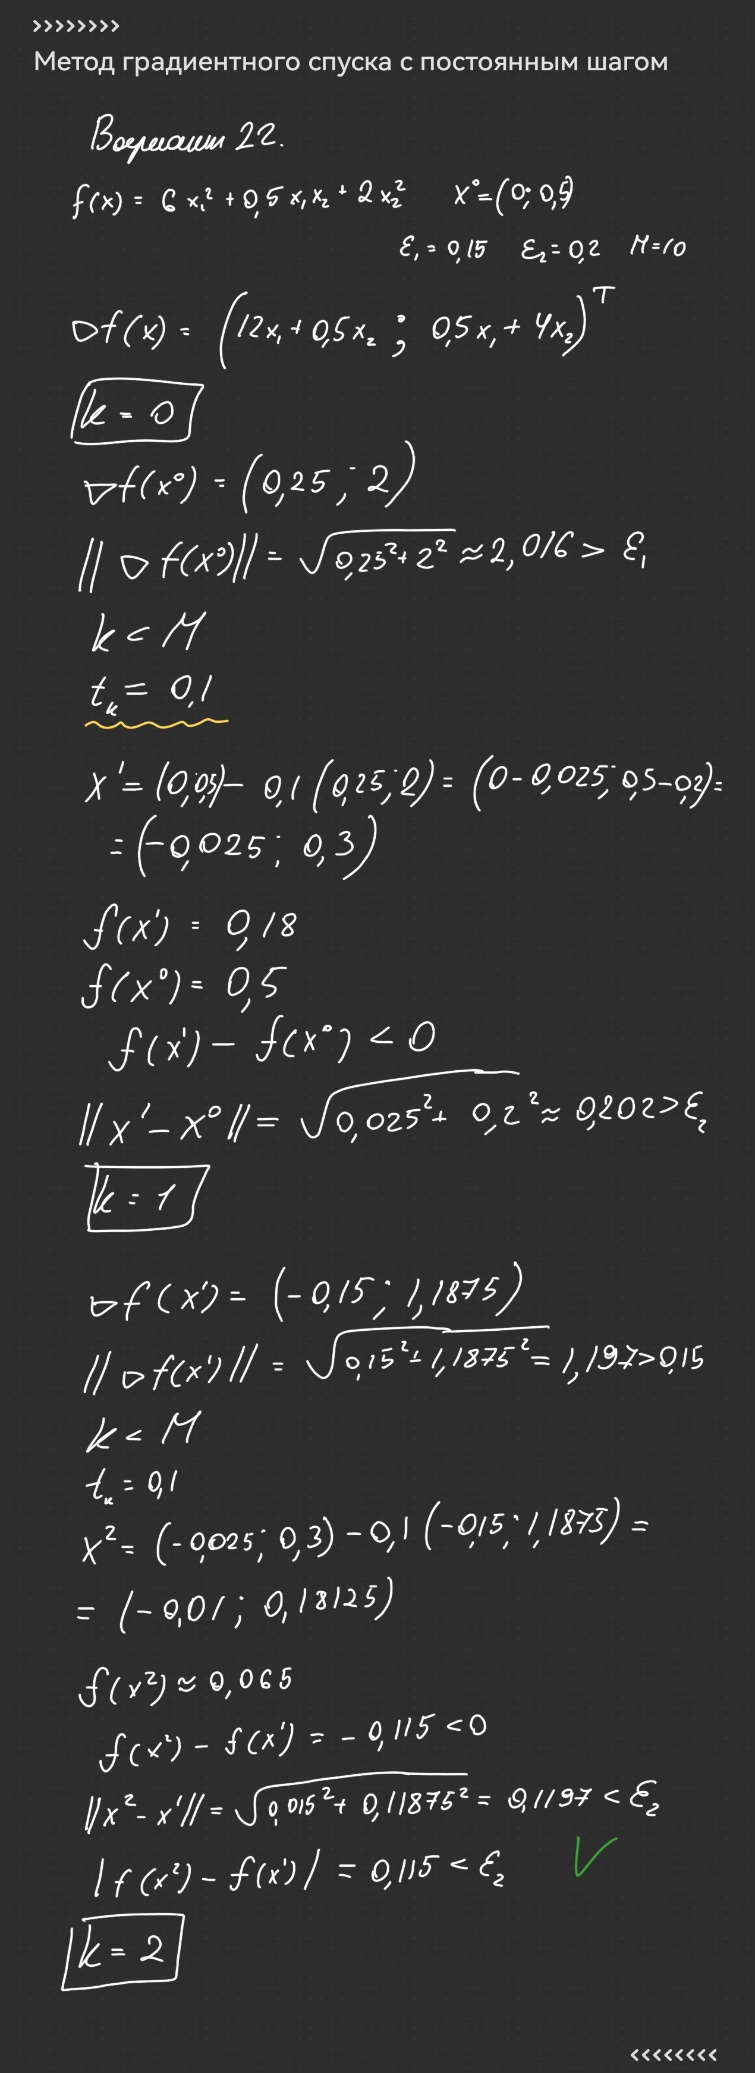 >>>>>>>>
Метод градиентного спуска с постоянным шагом
Вариант 22.
f(x) = 6x₁² + 0,5x₁x₂ + 2x₂² x⁰=(0; 0,5)
ε₁ = 0,15 ε₂ = 0,2 M=10
▽f(x) = (12x₁ + 0,5x₂ ; 0,5x₁ + 4x₂)ᵀ
k = 0
▽f(x⁰) = (0,25 ; 2)
||▽f(x⁰)|| = √(0,25² + 2²) ≈ 2,016 > ε₁
k < M
tₖ = 0,1
x¹ = (0;0,5) − 0,1 (0,25; 2) = (0 − 0,025; 0,5−0,2) =
= (−0,025; 0,3)
f(x¹) = 0,18
f(x⁰) = 0,5
f(x¹) − f(x⁰) < 0
||x¹ − x⁰|| = √(0,025² + 0,2²) ≈ 0,202 > ε₂
k = 1
▽f(x¹) = (−0,15; 1,1875)
||▽f(x¹)|| = √(0,15² + 1,1875²) = 1,197 > 0,15
k < M
tₖ = 0,1
x² = (−0,025; 0,3) − 0,1 (−0,15; 1,1875) =
= (−0,01; 0,18125)
f(x²) ≈ 0,065
f(x²) − f(x¹) = −0,115 < 0
||x² − x¹|| = √(0,015² + 0,11875²) = 0,1197 < ε₂
|f(x²) − f(x¹)| = 0,115 < ε₂ ✓
k = 2
<<<<<<<<